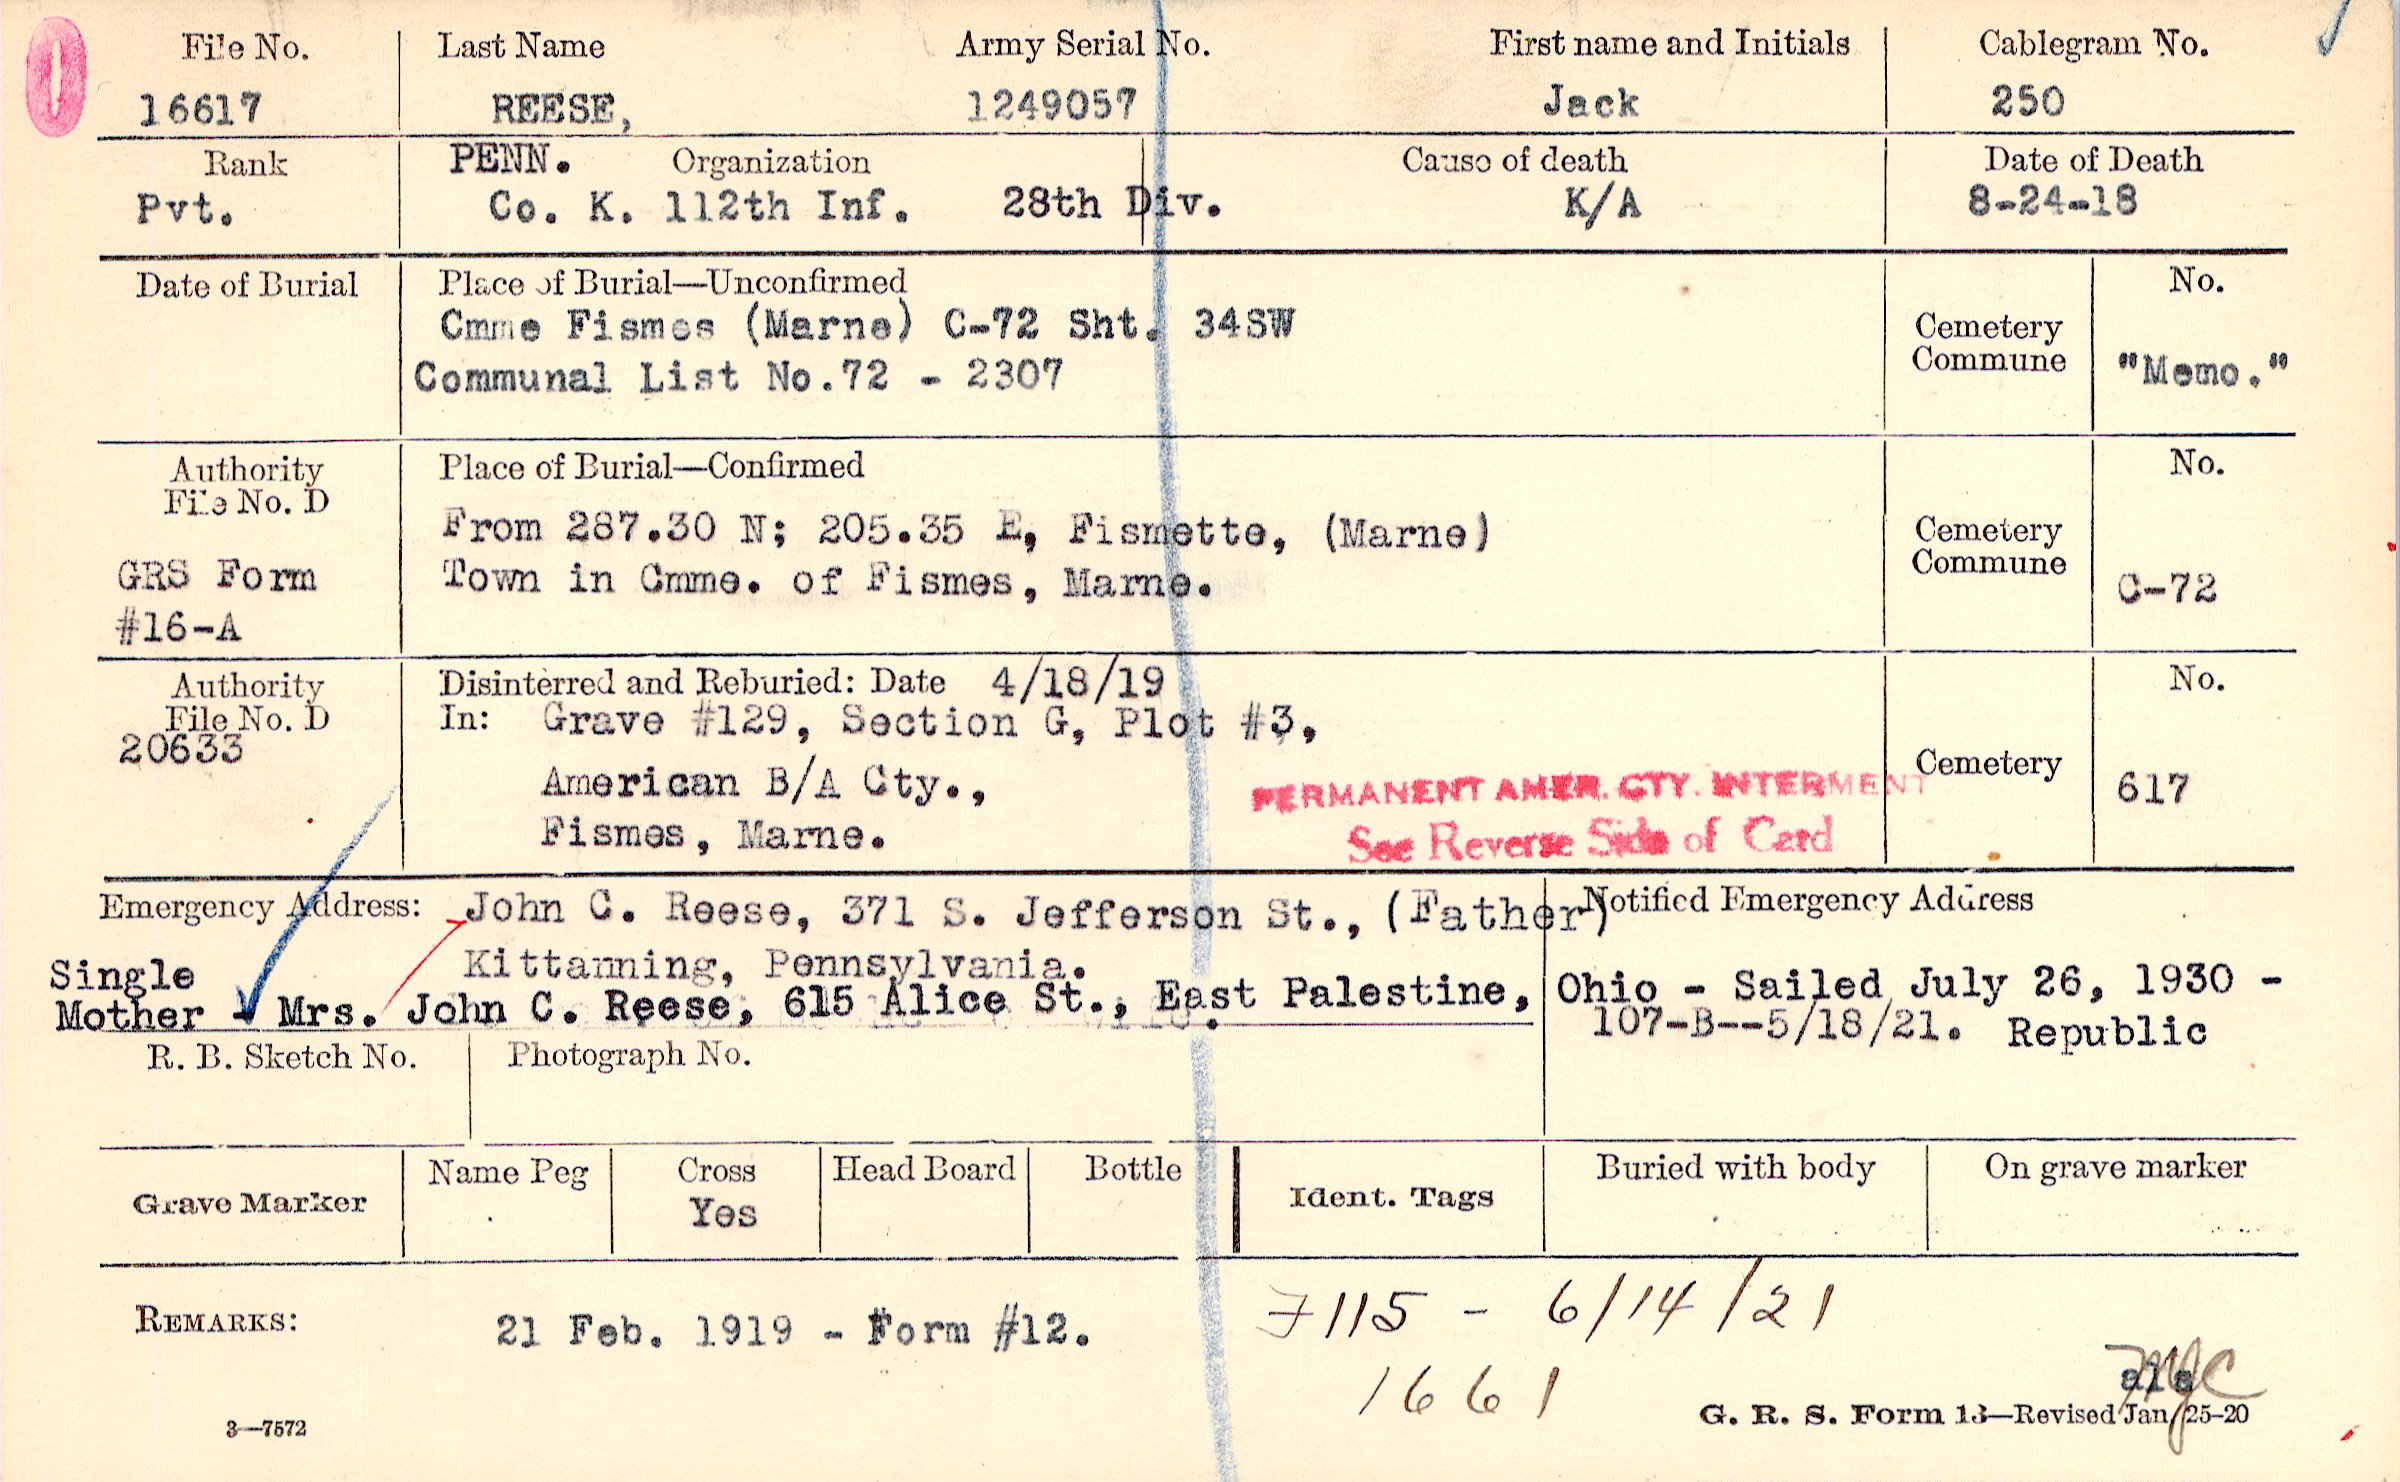 File No. Last Name Army Serial No. First name and Initials Cablegram No.
16617 REESE, 1249057 Jack 250
Rank PENN. Organization Cause of death Date of Death
Pvt. Co. K. 112th Inf. 28th Div. K/A 8-24-18
Date of Burial Place of Burial—Unconfirmed No.
Cmme Fismes (Marne) C-72 Sht. 34SW Cemetery
Communal List No.72 - 2307 Commune "Memo."
Authority Place of Burial—Confirmed No.
File No. D
From 287.30 N; 205.35 E, Fismette, (Marne) Cemetery
GRS Form Town in Cmme. of Fismes, Marne. Commune C-72
#16-A
Authority Disinterred and Reburied: Date 4/18/19 No.
File No. D In: Grave #129, Section G, Plot #3,
20633
American B/A Cty., PERMANENT AMER. CTY. INTERMENT Cemetery 617
Fismes, Marne. See Reverse Side of Card
Emergency Address: John C. Reese, 371 S. Jefferson St., (Father) Notified Emergency Address
Single Kittanning, Pennsylvania.
Mother - Mrs. John C. Reese, 615 Alice St., East Palestine, Ohio - Sailed July 26, 1930 -
107-B--5/18/21. Republic
R. B. Sketch No. Photograph No.
Grave Marker Name Peg Cross Head Board Bottle Ident. Tags Buried with body On grave marker
Yes
REMARKS: 21 Feb. 1919 - Form #12. 7115 - 6/14/21
1661
3—7572 G. R. S. Form 13—Revised Jan. 25-20